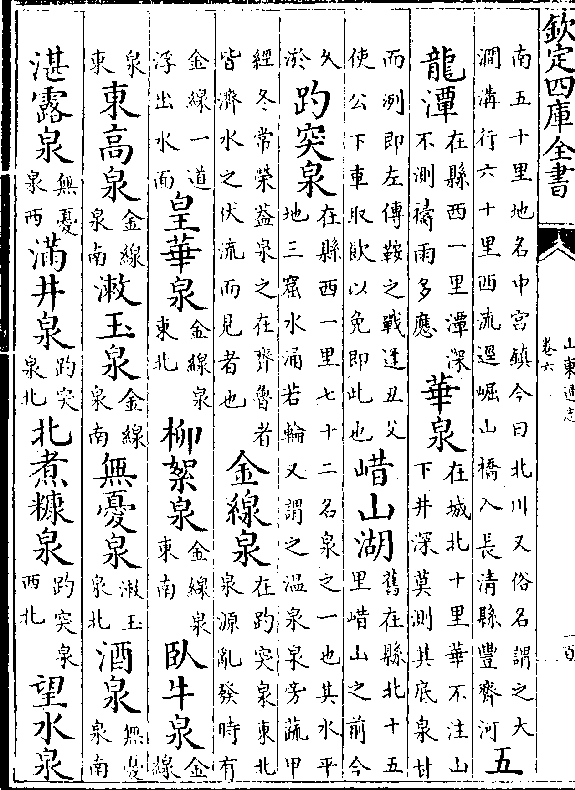 欽定四庫全書
山東通志
卷六
南五十里地名中宮鎮今曰北川又俗名謂之大
澗溝行六十里西流遶崛山橋入長清縣豐齊河
五
龍潭
在縣西一里潭深
不測禱雨多應
華泉
在城北十里華不注山
下井深莫測其底泉甘
而洌即左傳鞍之戰逢丑父
使公下車取飲以免即此也
山湖
舊在縣北十五
里山之前今
久
淤
趵突泉
在縣西一里七十二名泉之一也其水平
地三窟水涌若輪又謂之溫泉泉旁蔬甲
經冬常榮蓋泉之在齊魯者
皆濟水之伏流而見者也
金線泉
在趵突泉東北
泉源亂發時有
金線一道
浮出水面
皇華泉
金線泉
東北
柳絮泉
金線泉
東南
臥牛泉
金
線
泉
東
東高泉
金線
泉南
漱玉泉
金線
泉南
無憂泉
漱玉
泉北
酒泉
無憂
泉南
湛露泉
無憂
泉西
滿井泉
趵突
泉北
北煮糠泉
趵突泉
西北
望水泉